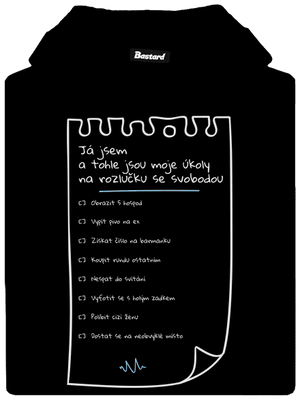 Bastard
Já jsem
a tohle jsou moje úkoly
na rozlučku se svobodou
Obrazit 5 hospod
Vypít pivo na ex
Získat číslo na barmanku
Koupit rundu ostatním
Nespat do svítání
Vyfotit se s holým zadkem
Políbit cizí ženu
Dostat se na neobvyklé místo